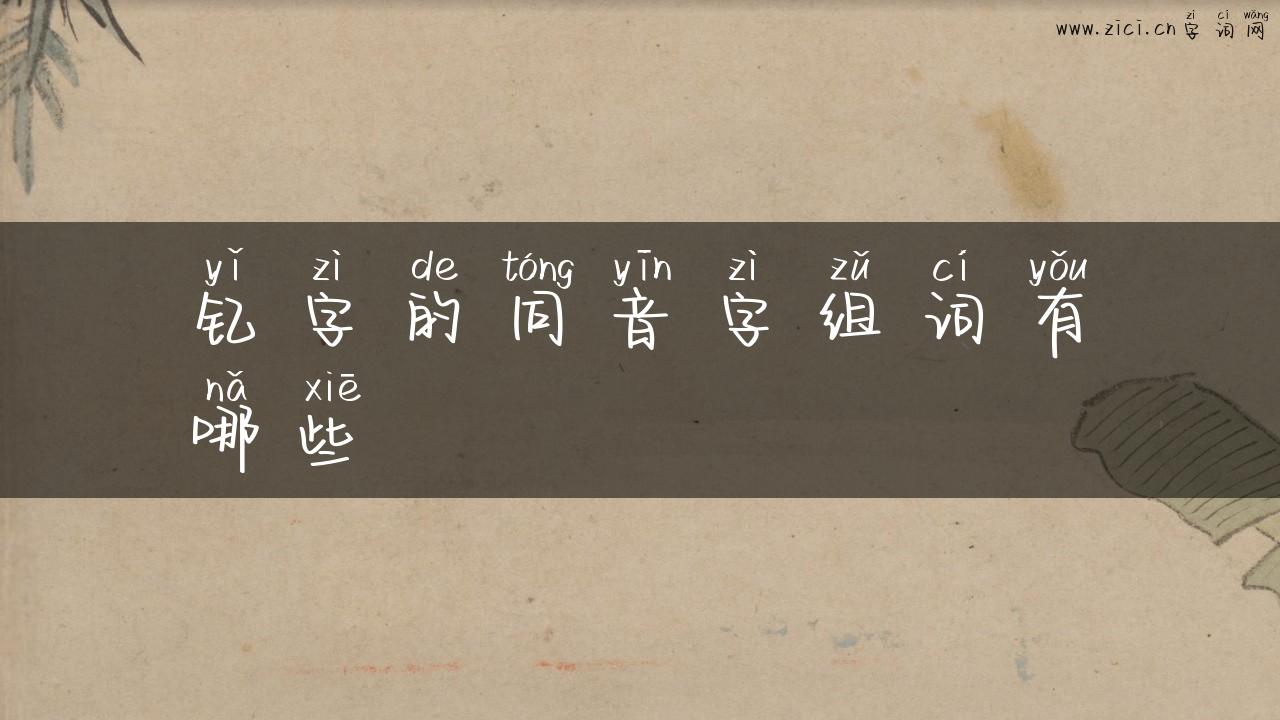 zì cí wǎng
www.zici.cn 字词网
yǐ zì de tóng yīn zì zǔ cí yǒu
钇字的同音字组词有
nǎ xiē
哪些